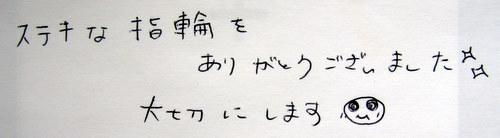 ステキな指輪を
ありがとうございました
大切にします